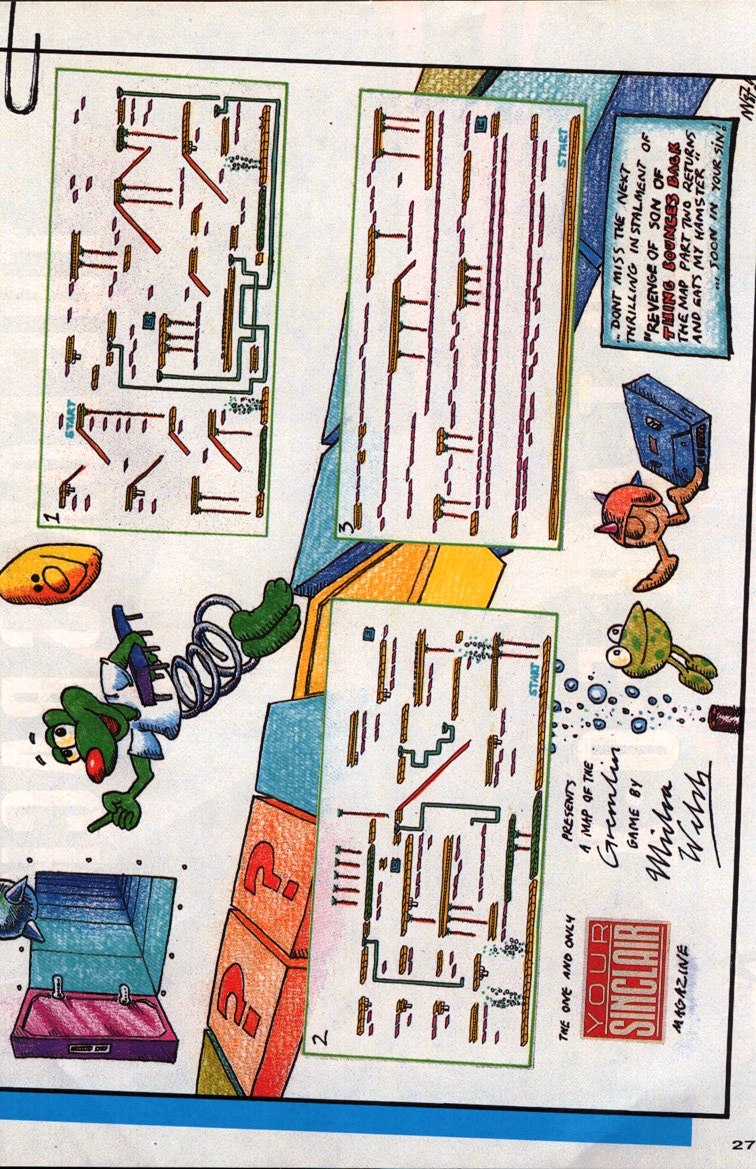 1
START
2
START
3
START
? ?
THE ONE AND ONLY
YOUR
SINCLAIR
MAGAZINE
PRESENTS
A MAP OF THE
Gremlin
GAME BY
Misha
Welsh
"DONT MISS THE NEXT
THRILLING INSTALMENT OF
"REVENGE OF SON OF
THING BOUNCES BACK
THE MAP PART TWO RETURNS
AND EATS MY HAMSTER"
... SOON IN YOUR SIN!
27